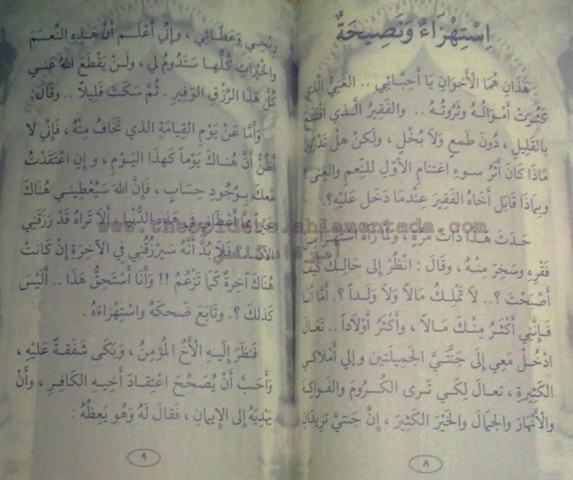 اِسْتِهْزَاءٌ وَنَصِيحَةٌ
هَذَانِ هُمَا الْأَخَوَانِ يَا أَحِبَّائِي .. الغَنِيُّ الَّذِي
كَثُرَتْ أَمْوَالُهُ وَثَرْوَتُهُ .. والفَقِيرُ الَّذِي اقْتَنَعَ
بِالقَلِيلِ، دُونَ طَمَعٍ وَلاَ بُخْلٍ، وَلَكِنْ هَلْ تَدْرُونَ
مَاذَا كَانَ أَثَرُ سُوءِ اغْتِنَامِ الأَوَّلِ لِلنِّعَمِ وَالغِنَى؟
وَبِمَاذَا قَابَلَ أَخَاهُ الفَقِيرَ عِنْدَمَا دَخَلَ عَلَيْهِ؟
حَدَثَ هَذَا ذَاتَ مَرَّةٍ، وَلَمَّا رَآهُ اسْتَهْزَأَ مِنْ
فَقْرِهِ وَسَخِرَ مِنْهُ، وَقَالَ: انْظُرْ إِلَى حَالِكَ كَيْفَ
أَصْبَحْتَ؟.. لاَ تَمْلِكُ مَالاً وَلاَ وَلَداً؟. أَمَّا أَنَا
فَإِنَّنِي أَكْثَرُ مِنْكَ مَالاً، وَأَكْثَرُ أَوْلاَداً.. تَعَالَ
ادْخُلْ مَعِي إِلَى جَنَّتَيَّ الجَمِيلَتَيْنِ وَإِلى أَمْلاَكِي
الكَثِيرَةِ، تَعَالَ لِكَيْ تَرَى الكُرُومَ وَالفَوَاكِهَ
وَالأَنْهَارَ وَالجَمَالَ وَالخَيْرَ الكَثِيرَ، إِنَّ جَنَّتَيَّ تَزِيدَانِ
٨
رِبْحِي وَعَطَائِي، وَإِنِّي أَعْلَمُ أَنَّ هَذِهِ النِّعَمَ
وَالخَيْرَاتِ كُلَّهَا سَتَدُومُ لِي، وَلَنْ يَقْطَعَ اللهُ عَنِّي
كُلَّ هَذَا الرِّزْقِ الوَفِيرِ. ثُمَّ سَكَتَ قَلِيلاً.. وَقَالَ:
وَأَمَّا عَنْ يَوْمِ القِيَامَةِ الذي تَخَافُ مِنْهُ، فَإِنِّي لاَ
أَظُنُّ أَنَّ هُنَاكَ يَوْماً كَهَذَا اليَوْمِ، وَإِنِ اعْتَقَدْتُ
مَعَكَ بِوُجُودِ حِسَابٍ، فَإِنَّ اللهَ سَيُعْطِينِي هُنَاكَ
مَا أَعْطَانِي فِي هَذِهِ الدُّنْيَا، أَلاَ تَرَاهُ قَدْ رَزَقَنِي
فَلاَ بُدَّ أَنَّهُ سَيَرْزُقُنِي فِي الآخِرَةِ إِنْ كَانَتْ
هُنَاكَ آخِرَةٌ كَمَا تَزْعُمُ!! وَأَنَا أَسْتَحِقُّ هَذَا.. أَلَيْسَ
كَذَلِكَ؟. وَتَابَعَ ضَحِكَهُ وَاسْتِهْزَاءَهُ.
فَنَظَرَ إِلَيهِ الأَخُ المُؤْمِنُ، وَبَكَى شَفَقَةً عَلَيهِ،
وَأَحَبَّ أَنْ يُصَحِّحَ اعْتِقَادَ أَخِيهِ الكَافِرِ، وَأَنْ
يَهْدِيَهُ إلى الإِيمانِ، فَقالَ لَهُ وَهُو يَعِظُهُ:
٩